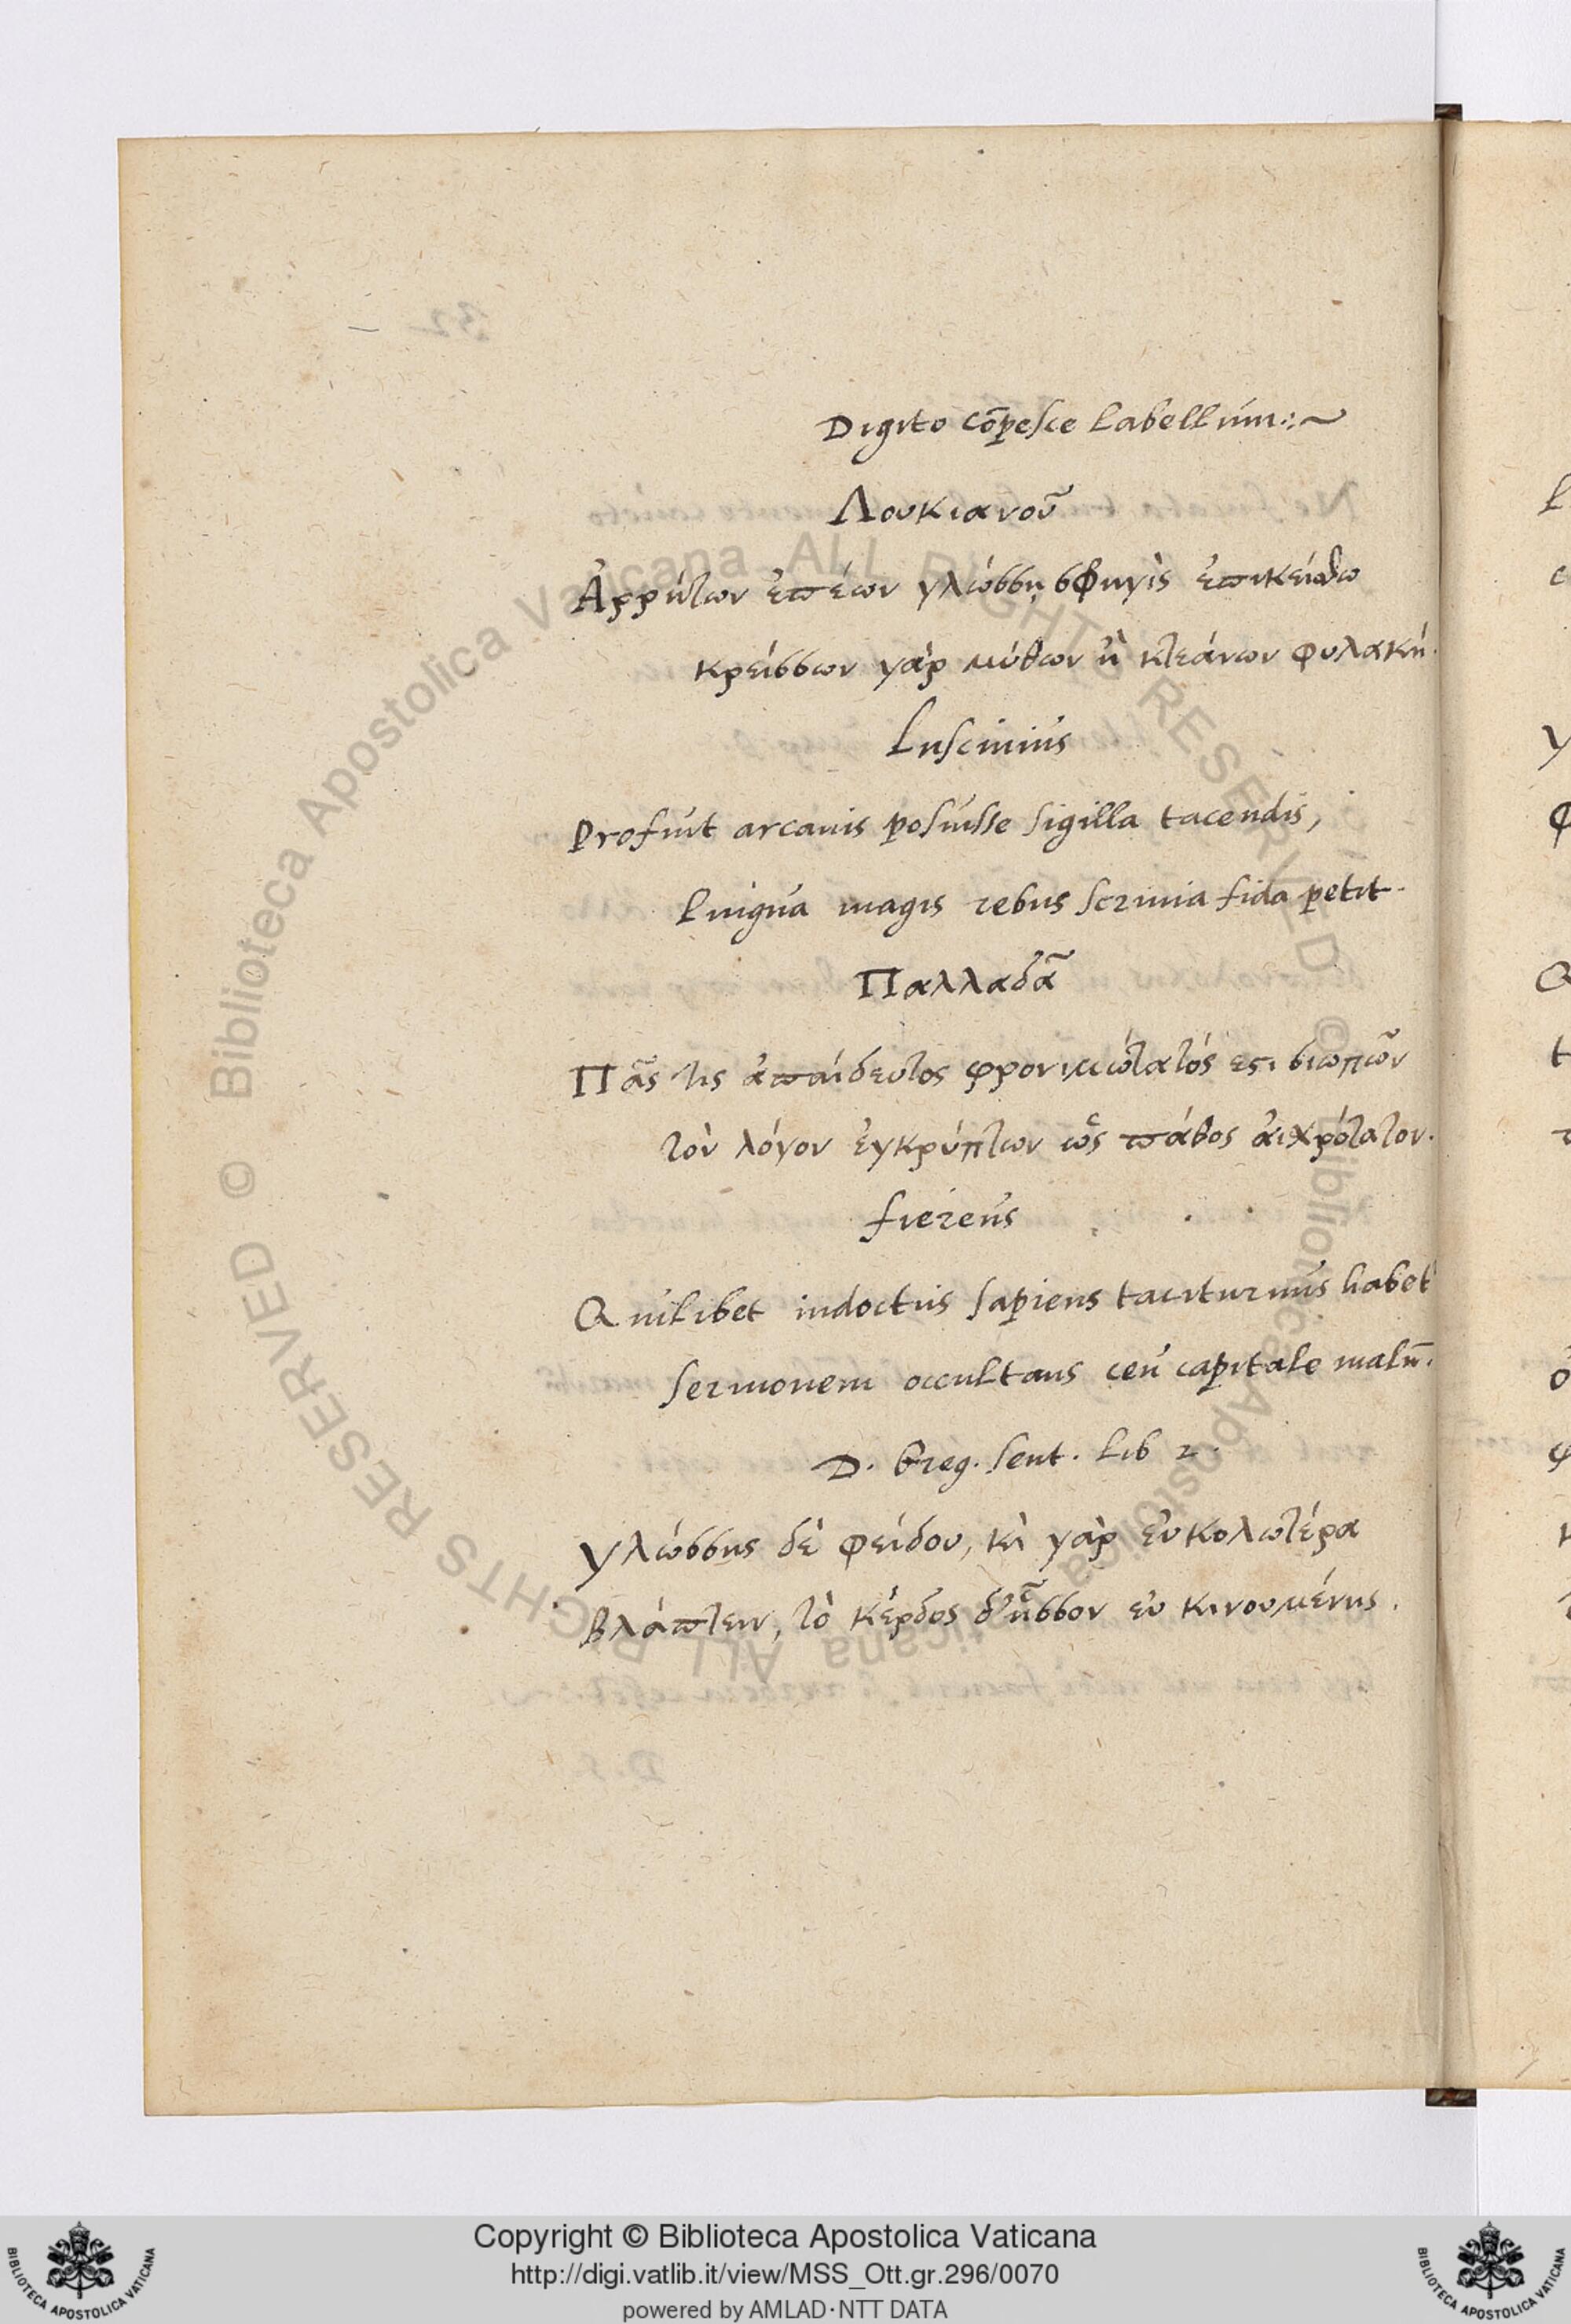 Digito cōpesce labellum:~
Λουκιανοῦ
Ἀρρήτων ἐπέων γλώσσῃ σφηγὶς ἐπικείσθω
κρείσσων γὰρ μύθων ἢ κτεάνων φυλακή.
Luscinius
Profuit arcanis posuisse sigilla tacendis,
lingua magis rebus scrinia fida petit.
Παλλαδᾶ
Πᾶς τις ἀπαίδευτος φρονιμώτατός εστι σιωπῶν
τὸν λόγον ἐγκρύπτων ὥς πάθος ἀισχρότατον.
fiereus
Quilibet indoctus sapiens taciturnus habet
sermonem occultans ceu capitale malū.
D. Greg. sent. Lib 2.
γλώσσης δὲ φείδου, κὶ γὰρ ἐυκολωτέρα
βλάπτειν, τὸ κέρδος δ' ἧσσον ευ κινουμένης.
32
Copyright © Biblioteca Apostolica Vaticana
http://digi.vatlib.it/view/MSS_Ott.gr.296/0070
powered by AMLAD·NTT DATA
© Biblioteca Apostolica Vaticana ALL RIGHTS RESERVED
© Biblioteca Apostolica Vaticana ALL RIGHTS RESERVED
BIBLIOTECA APOSTOLICA VATICANA
BIBLIOTECA APOSTOLICA VATICANA